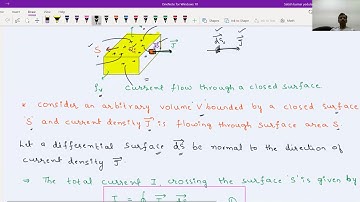 OneNote for Windows 10
S
J
dS
J
Sv
current flow through a closed surface
* consider an arbitrary volume 'V' bounded by a closed surface
'S' and current density J is flowing through surface area S.
Let a differential surface dS be normal to the direction of
current density J
→ The total current I, crossing the surface 'S' is given by